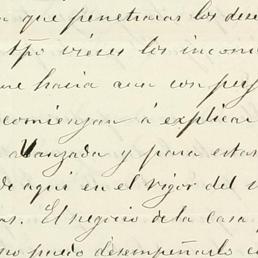 que penetraras los dese
tpo vieses los incon
hacia aun con per
comienzan á explicar
avanzada y para estas
de aqui en el rigor del
as. El negocio de la casa
no puedo desempeñarlo c